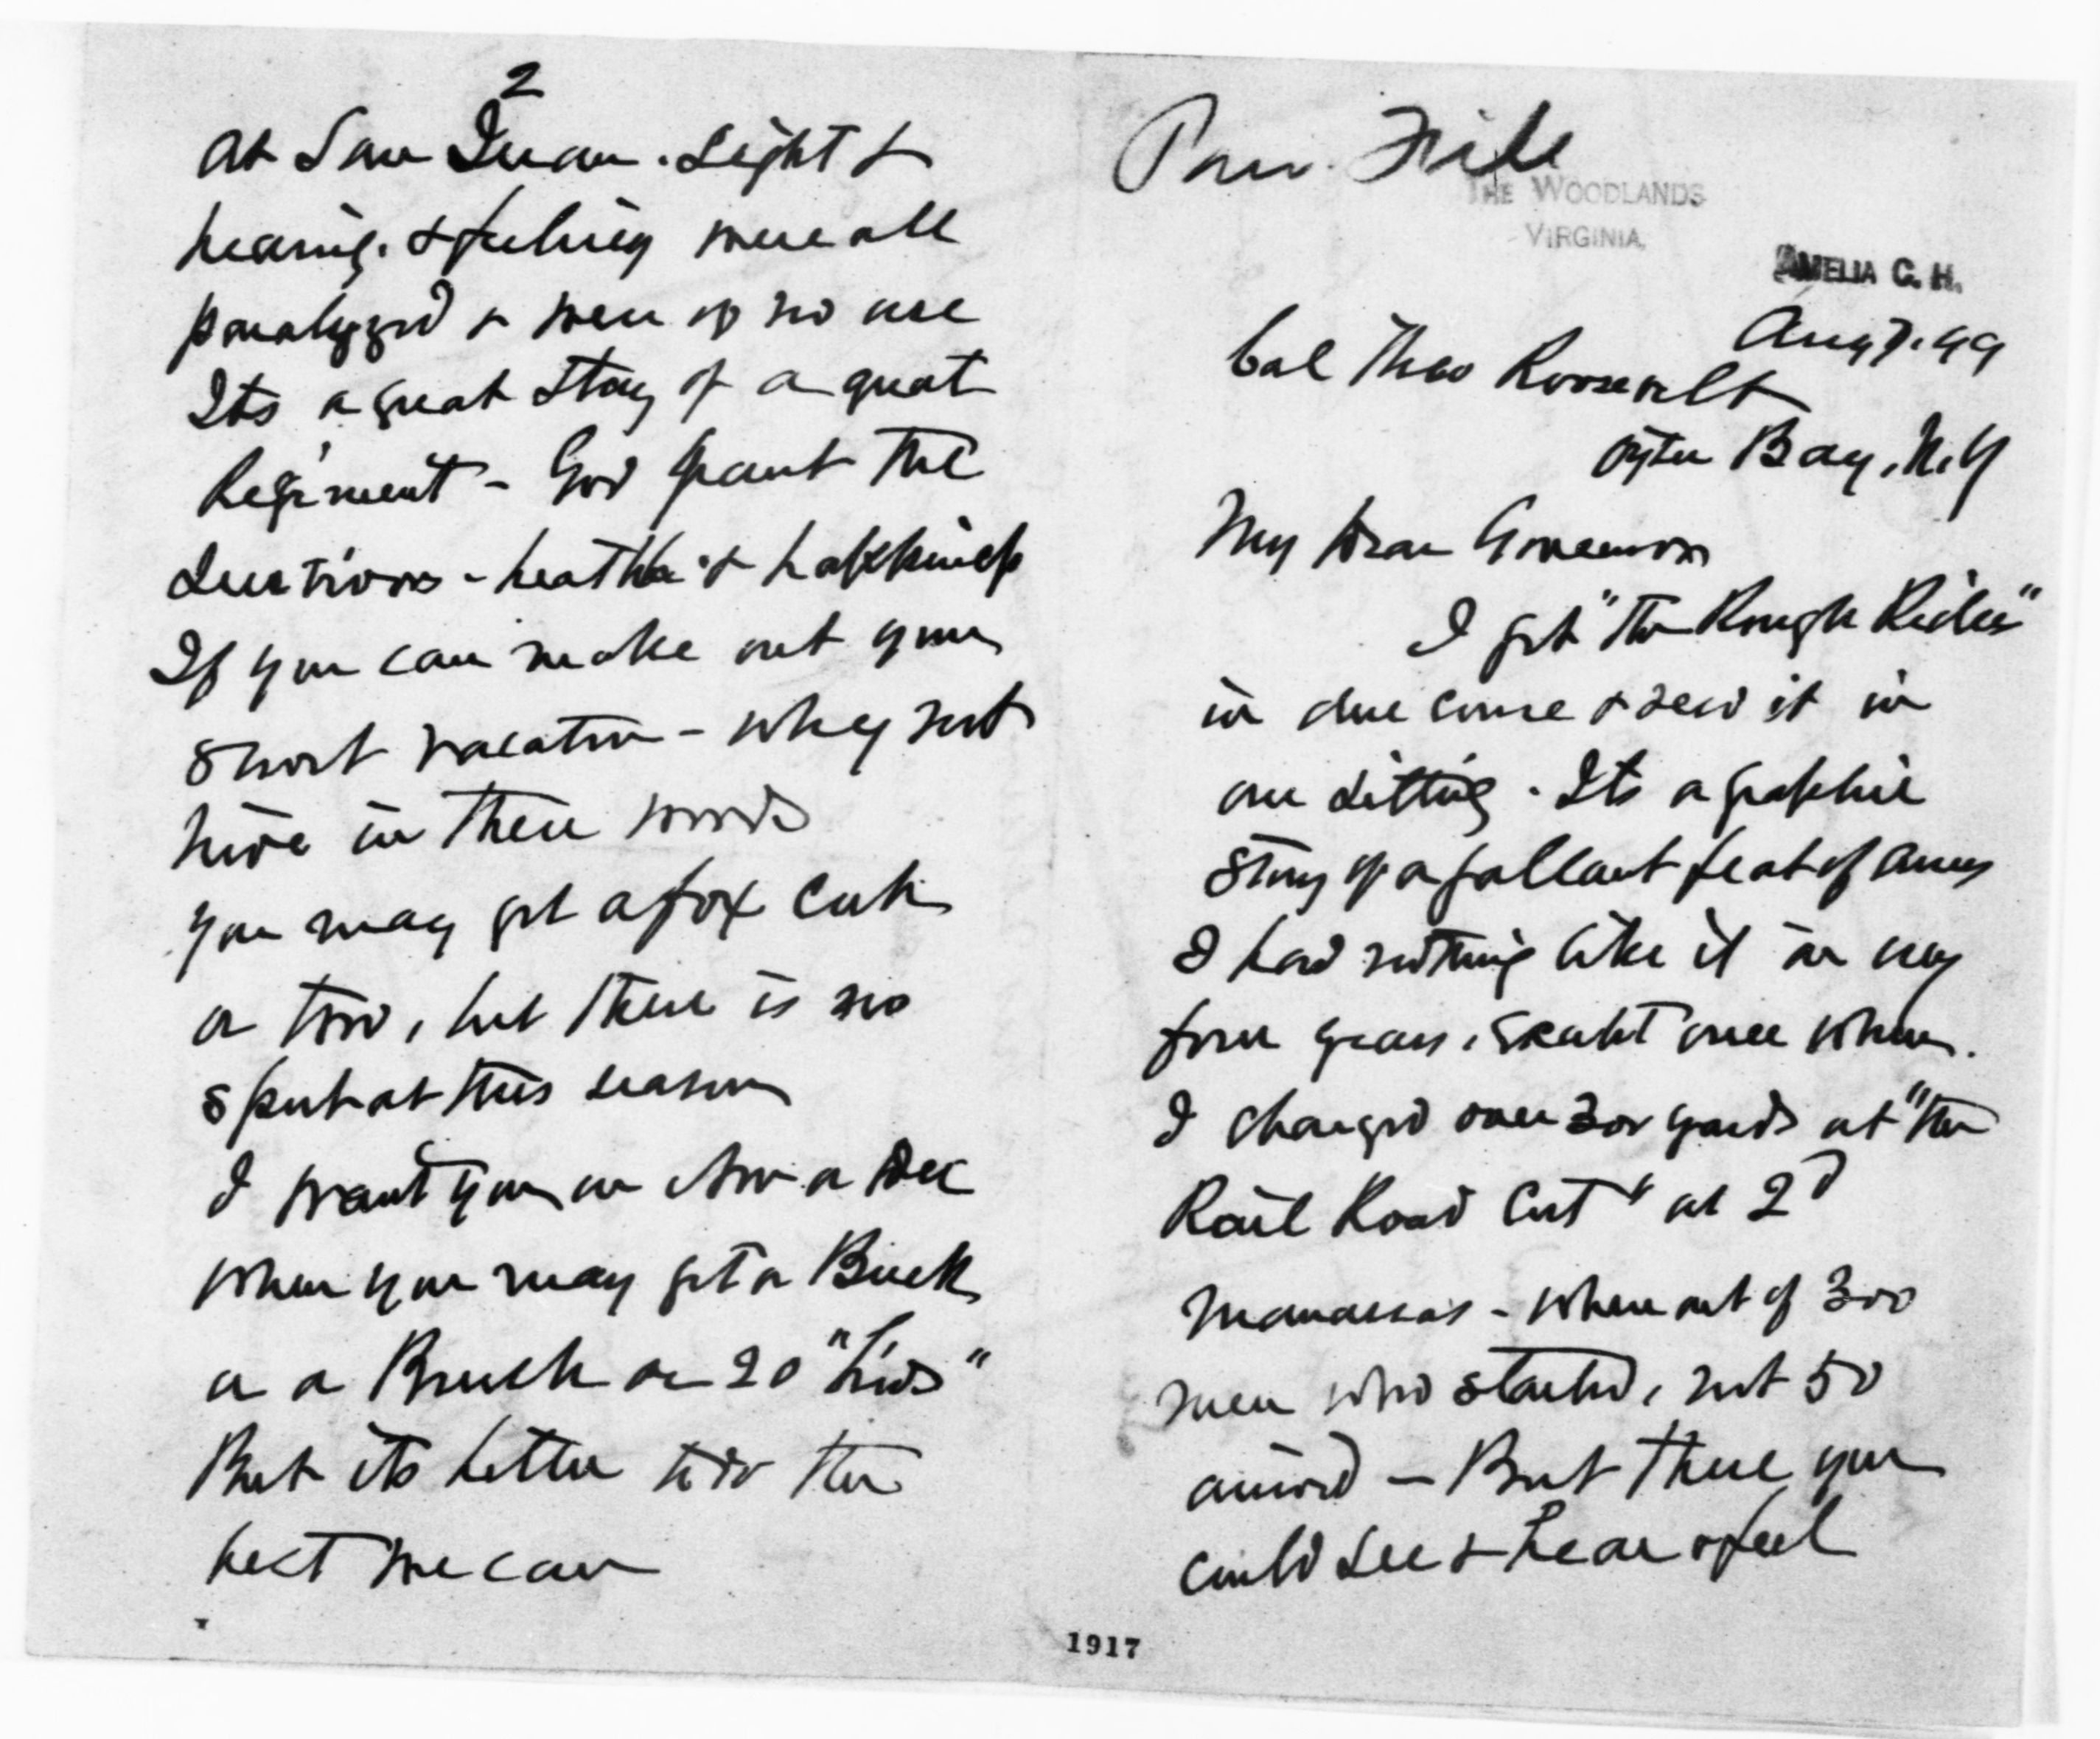 File
THE WOODLANDS
VIRGINIA.
AMELIA C. H.
Aug 7. 99
Col Theo Roosevelt
Oyster Bay, N.Y
My Dear Governor
I got "the Rough Riders"
in due course & read it in
one sitting. Its a graphic
story of a gallant feat of arms
I had nothing like it in my
four years, except once when
I charged over 300 yards at "the
Rail Road Cut" at 2d
Manassas - where out of 300
men who started, not 50
arrived - But there you
could see & hear & feel
2
At San Juan. Sight &
hearing. & feeling were all
paralyzed & were of no use
Its a great story of a great
Regiment - God grant the
survivors - health & happiness
If you can make out your
short vacation - why not
hide in these woods
you may get a fox cub
or two, but there is no
sport at this season
I want you in Nov or Dec
when you may get a Buck
or a Brush or 20 "birds"
But its better to do the
best we can
1917